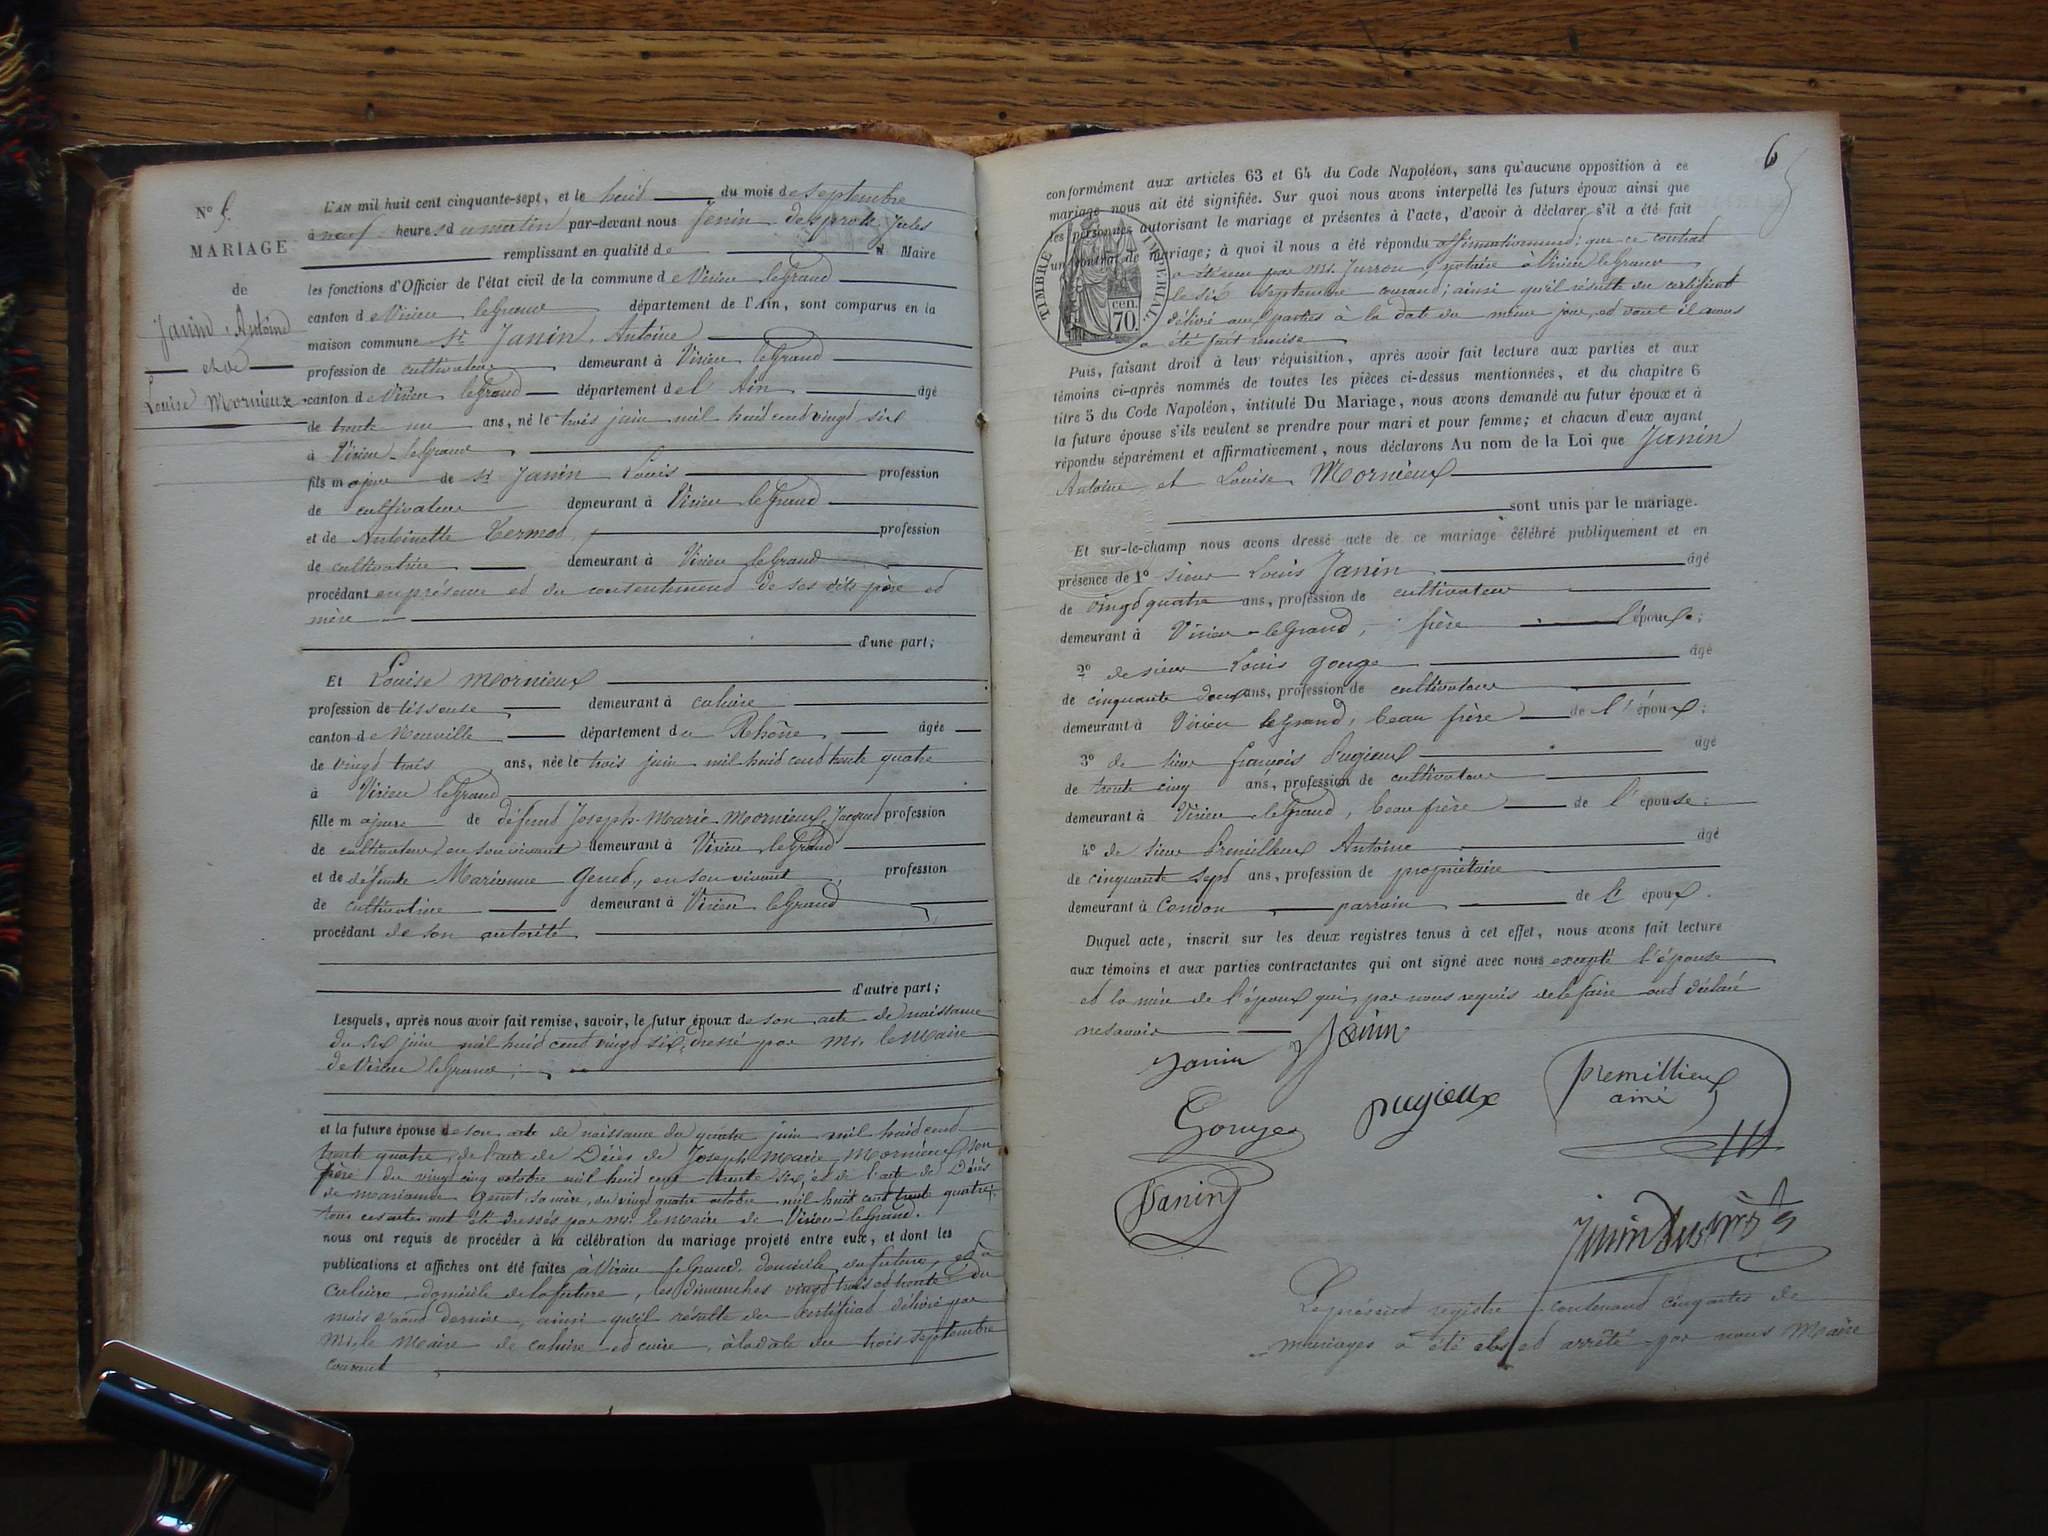 N° 5
MARIAGE
de
Janin, Antoine
et de
Louise Mornieux
L'AN mil huit cent cinquante-sept, et le huit du mois de septembre
à neuf heures du matin par-devant nous Jules
remplissant en qualité de Maire
les fonctions d'Officier de l'état civil de la commune de Virieu le Grand
canton de Virieu le Grand département de l'Ain, sont comparus en la
maison commune Sr Janin, Antoine
profession de cultivateur demeurant à Virieu le Grand
canton de Virieu le Grand département de l'Ain âgé
de trente un ans, né le trois juin mil huit cent vingt six
à Virieu-le Grand
fils majeur de Sr Janin Louis profession
de cultivateur demeurant à Virieu le Grand
et de Antoinette profession
de cultivatrice demeurant à Virieu le Grand
procédant en présence et du consentement de ses dits père et
mère
d'une part;
Et Louise Mornieux
profession de tisseuse demeurant à caluire
canton de Neuville département du Rhône âgée
de vingt trois ans, née le trois juin mil huit cent trente quatre
à Virieu le Grand
fille majeure de défunt Joseph-Marie Mornieux, Jacques profession
de cultivateur en son vivant demeurant à Virieu le Grand
et de défunte Marianne Genet, en son vivant, profession
de cultivatrice demeurant à Virieu le Grand
procédant de son autorité
d'autre part;
Lesquels, après nous avoir fait remise, savoir, le futur époux de son acte de naissance
du six juin mil huit cent vingt six, dressé par Mr. le Maire
de Virieu le Grand;
et la future épouse de son acte de naissance du quatre juin mil huit cent
trente quatre, de l'acte de Décès de Joseph Marie Mornieux, son
père, du vingt cinq octobre mil huit cent trente six, et de l'acte de Décès
de Marianne Genet, sa mère, du vingt quatre octobre mil huit cent trente quatre;
tous ces actes ont été dressés par Mr. le Maire de Virieu-le Grand.
nous ont requis de procéder à la célébration du mariage projeté entre eux, et dont les
publications et affiches ont été faites à Virieu le Grand, domicile du futur, et à
Caluire, domicile de la future, les dimanches vingt trois et trente du
mois d'août dernier, ainsi qu'il résulte du certificat délivré par
Mr. le Maire de caluire et cuire, à la date du trois septembre
courant
6
conformément aux articles 63 et 64 du Code Napoléon, sans qu'aucune opposition à ce
mariage nous ait été signifiée. Sur quoi nous avons interpellé les futurs époux ainsi que
les personnes autorisant le mariage et présentes à l'acte, d'avoir à déclarer s'il a été fait
un contrat de mariage; à quoi il nous a été répondu affirmativement; que ce contrat
a été reçu par Mr. notaire à Virieu le Grand
le six septembre courant; ainsi qu'il résulte du certificat
délivré aux parties à la date du même jour, et dont il nous
a été fait remise
TIMBRE IMPÉRIAL.
70 cen.
Puis, faisant droit à leur réquisition, après avoir fait lecture aux parties et aux
témoins ci-après nommés de toutes les pièces ci-dessus mentionnées, et du chapitre 6
titre 5 du Code Napoléon, intitulé Du Mariage, nous avons demandé au futur époux et à
la future épouse s'ils veulent se prendre pour mari et pour femme; et chacun d'eux ayant
répondu séparément et affirmativement, nous déclarons Au nom de la Loi que Janin
Antoine et Louise Mornieux
sont unis par le mariage.
Et sur-le-champ nous avons dressé acte de ce mariage célébré publiquement et en
présence de 1° sieur Louis Janin âgé
de vingt quatre ans, profession de cultivateur
demeurant à Virieu-le Grand, frère l'époux;
2° de sieur Louis Gouge âgé
de cinquante deux ans, profession de cultivateur
demeurant à Virieu le Grand, beau frère de l'époux;
3° de sieur françois Pugieux âgé
de trente cinq ans, profession de cultivateur
demeurant à Virieu le Grand, beau frère de l'épouse;
4° de sieur Premillieux Antoine âgé
de cinquante sept ans, profession de propriétaire
demeurant à Condon, parrain de l'époux.
Duquel acte, inscrit sur les deux registres tenus à cet effet, nous avons fait lecture
aux témoins et aux parties contractantes qui ont signé avec nous excepté l'épouse
et la mère de l'époux qui, par nous requis de le faire ont déclaré
ne savoir
Janin Janin
Gouges pugieux premillieux
ainé
Janin
Le présent registre contenant cinq actes de
mariages a été clos et arrêté par nous Maire